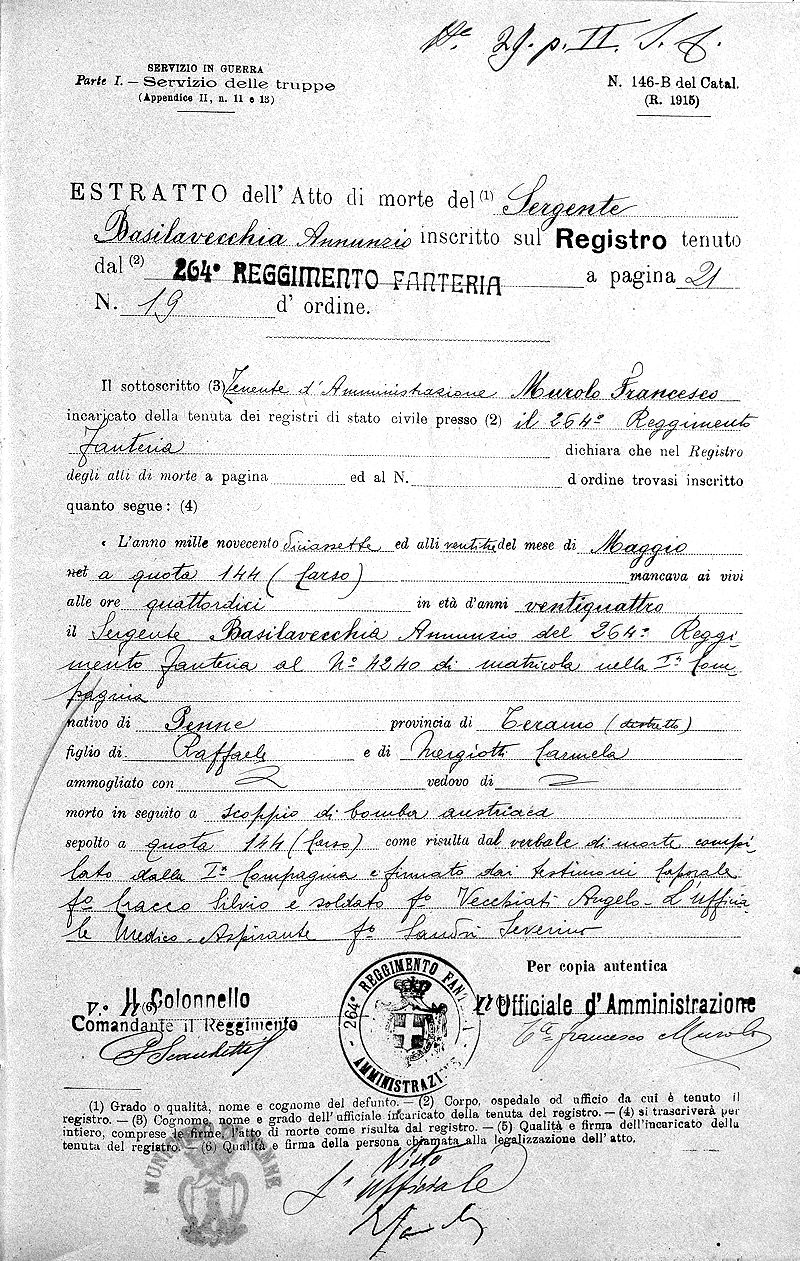 N° 29. p. II. S. C.
SERVIZIO IN GUERRA
Parte I. — Servizio delle truppe
(Appendice II, n. 11 e 13)
N. 146-B del Catal.
(R. 1915)
ESTRATTO dell' Atto di morte del (1) Sergente
Basilavecchia Annunzio inscritto sul Registro tenuto
dal (2) 264° REGGIMENTO FANTERIA a pagina 21
N. 19 d' ordine.
Il sottoscritto (3) Tenente d'Amministrazione Murolo Francesco
incaricato della tenuta dei registri di stato civile presso (2) il 264° Reggimento
Fanteria dichiara che nel Registro
degli atti di morte a pagina ed al N. d'ordine trovasi inscritto
quanto segue: (4)
« L'anno mille novecento diciassette ed alli ventitre del mese di Maggio
nel a quota 144 (Carso) mancava ai vivi
alle ore quattordici in età d'anni ventiquattro
il Sergente Basilavecchia Annunzio del 264° Reggi-
mento Fanteria al N° 4240 di matricola nella Iª Com-
pagnia
nativo di Penne provincia di Teramo (distretto)
figlio di Raffaele e di Mergiotti Carmela
ammogliato con vedovo di
morto in seguito a scoppio di bomba austriaca
sepolto a quota 144 (Carso) come risulta dal verbale di morte compi-
lato dalla Iª Compagnia e firmato dai testimoni Caporale
f° Cracco Silvio e soldato f° Vecchiati Angelo - L'Uffizia-
le Medico - Aspirante f° Sandri Severino
Per copia autentica
V.° Il (6) Colonnello
Comandante il Reggimento
264° REGGIMENTO FANT
AMMINISTRAZIONE
Il (5) Ufficiale d'Amministrazione
Francesco Murolo
(1) Grado o qualità, nome e cognome del defunto. — (2) Corpo, ospedale od ufficio da cui è tenuto il
registro. — (3) Cognome, nome e grado dell'ufficiale incaricato della tenuta del registro. — (4) si trascriverà per
intiero, comprese le firme, l'atto di morte come risulta dal registro. — (5) Qualità e firma dell'incaricato della
tenuta del registro. (6) Qualità e firma della persona chiamata alla legalizzazione dell'atto.
Visto
L'Ufficiale